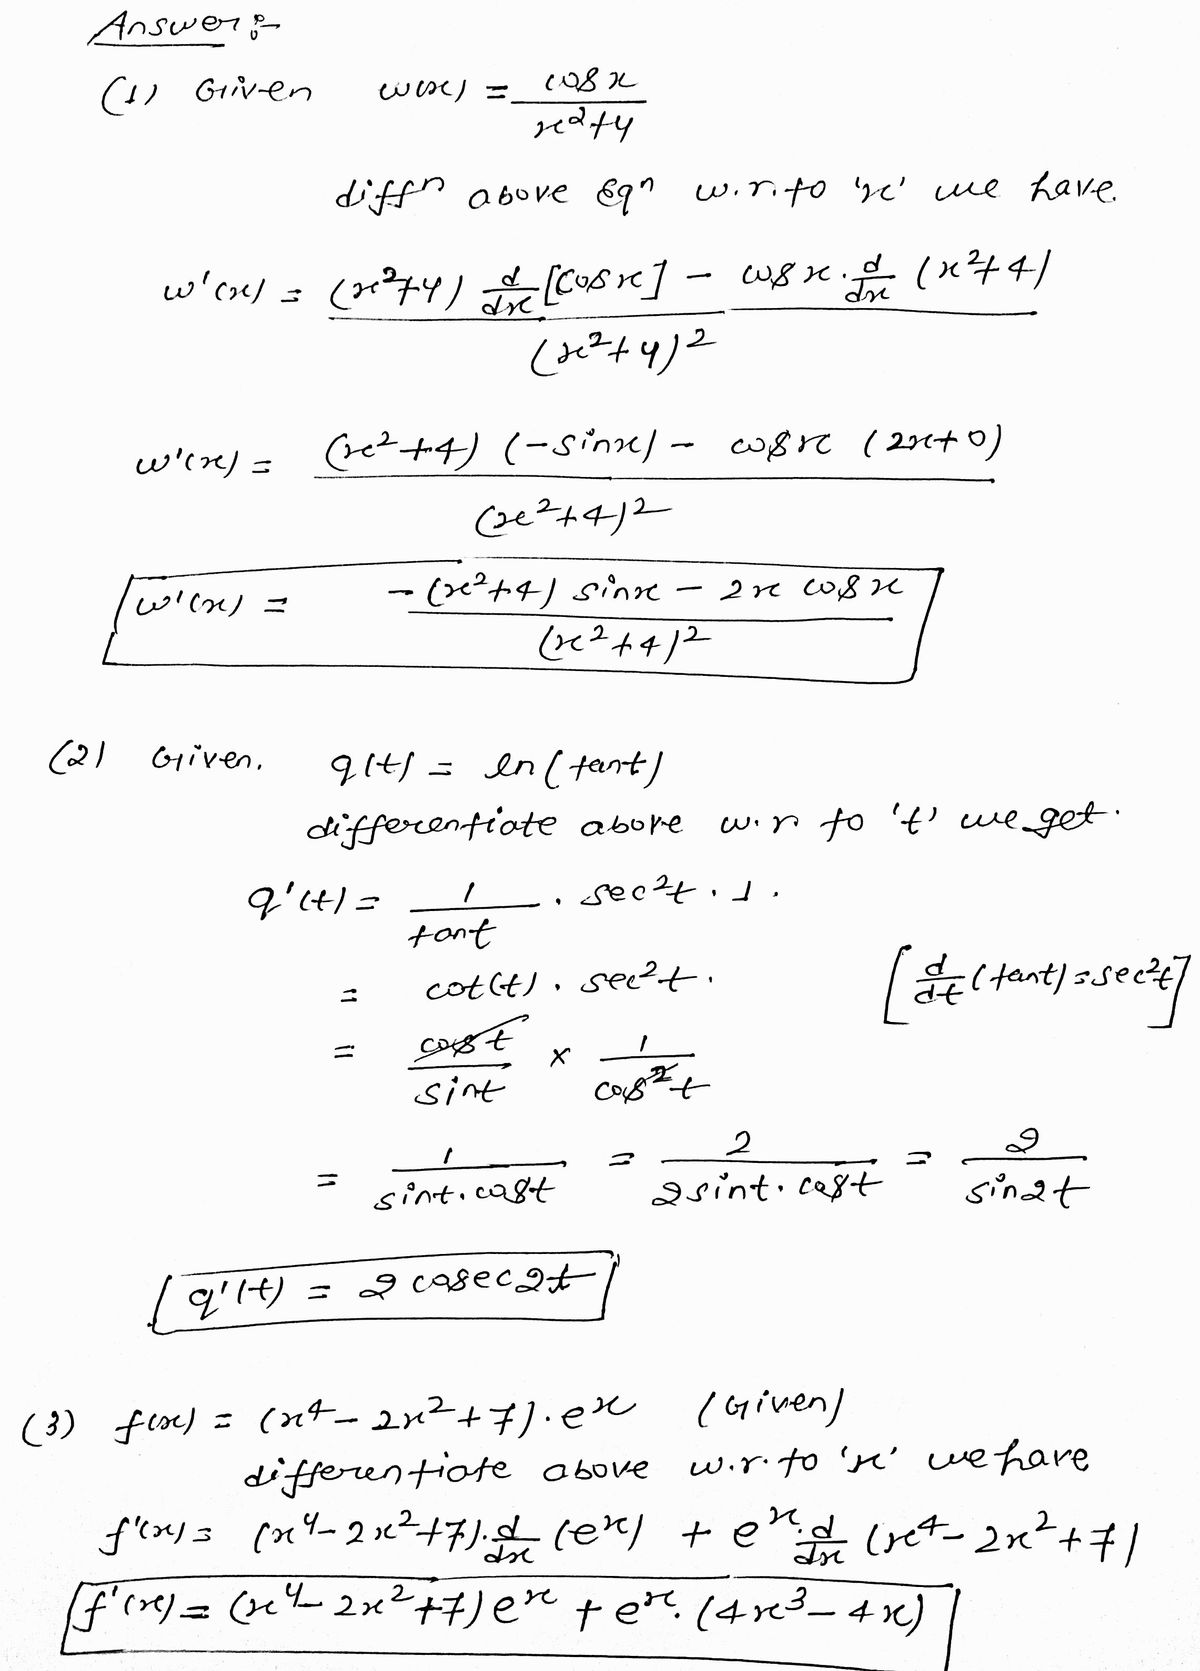 Answer :-
(1) Given w(x) = cos x / x²+4
diffⁿ above Eqⁿ w.r.to 'x' we have.
w'(x) = (x²+4) d/dx [cos x] - cos x . d/dx (x²+4) / (x²+4)²
w'(x) = (x²+4) (-sin x) - cos x (2x+0) / (x²+4)²
w'(x) = -(x²+4) sin x - 2x cos x / (x²+4)²
(2) Given. q(t) = ln(tan t)
differentiate above w.r to 't' we get.
q'(t) = 1/tan t . sec²t . 1 .
= cot(t) . sec²t . [d/dt (tan t) = sec²t]
= cos t / sin t × 1 / cos²t
= 1 / sin t . cos t = 2 / 2 sin t . cos t = 2 / sin 2t
q'(t) = 2 cosec 2t
(3) f(x) = (x⁴ - 2x² + 7) . eˣ (Given)
differentiate above w.r.to 'x' we have
f'(x) = (x⁴ - 2x² + 7) . d/dx (eˣ) + eˣ . d/dx (x⁴ - 2x² + 7)
f'(x) = (x⁴ - 2x² + 7) eˣ + eˣ . (4x³ - 4x)